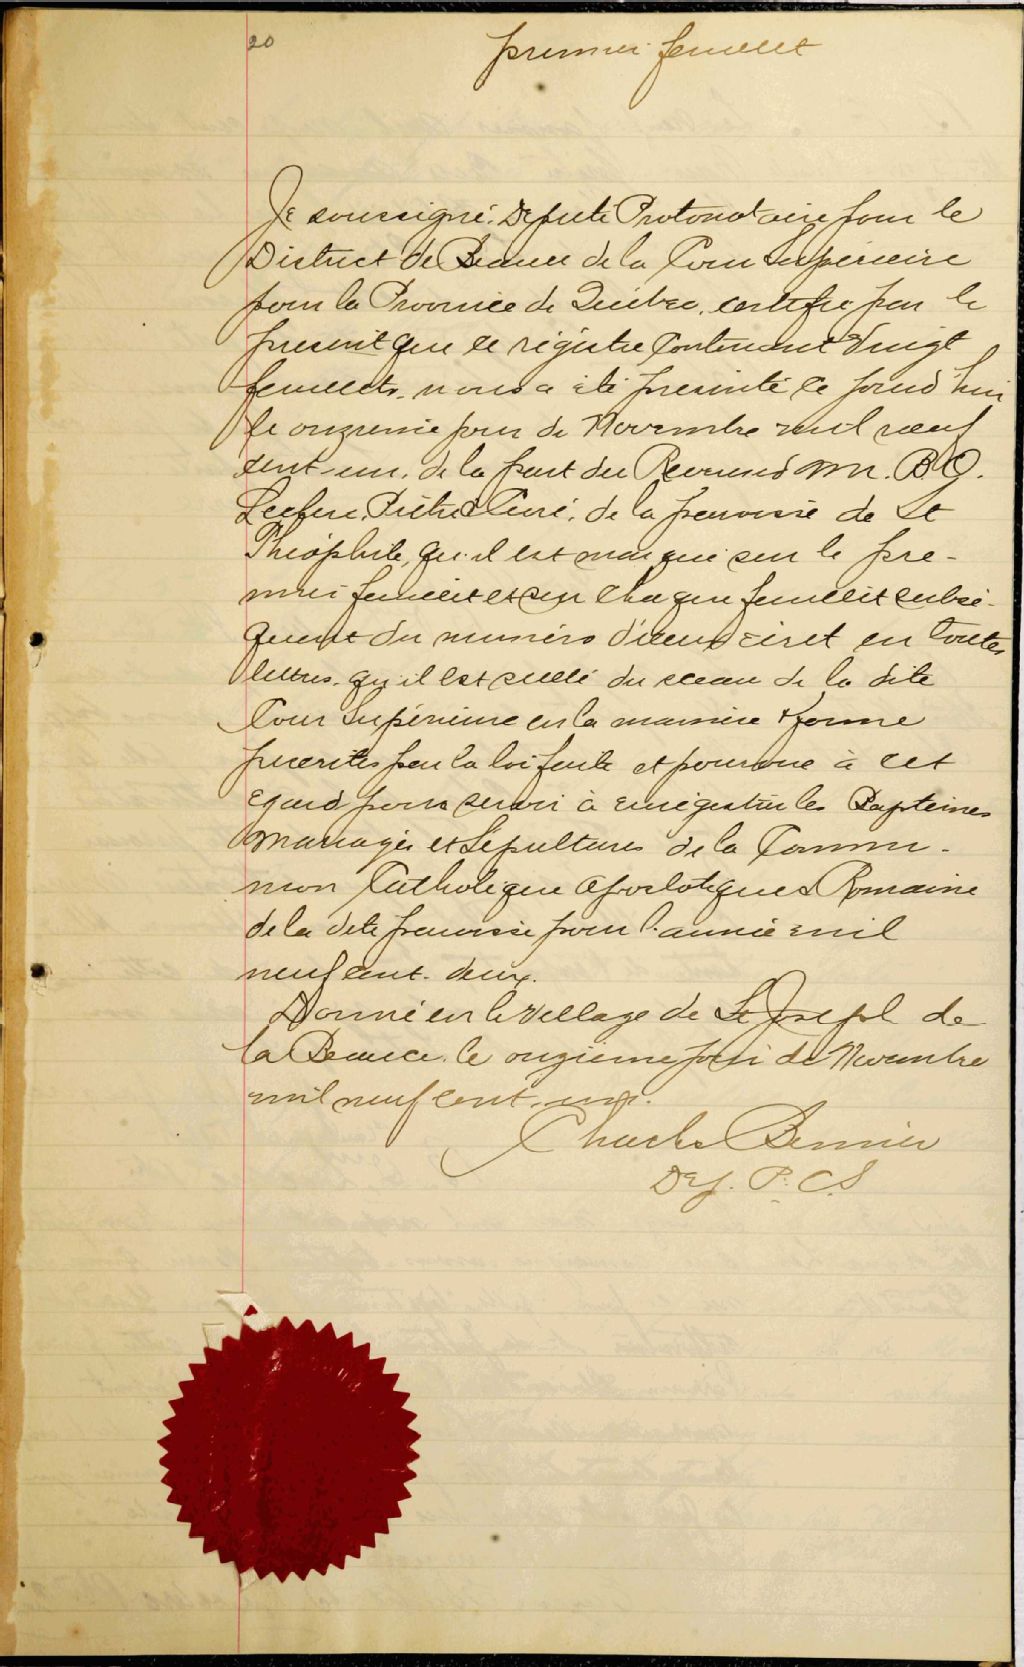 20
premier feuillet
Je soussigné, Député Protonotaire pour le
District de Beauce de la Cour Supérieure
pour la Province de Québec, certifie par le
présent que ce régistre contenant vingt
feuillets, nous a été présenté ce jourd'hui
le onzième jour de Novembre mil neuf
cent-un, de la part du Révérend Mr. B. O.
Leclerc, Prêtre & Curé, de la paroisse de St
Théophile, qu'il est marqué sur le pre-
mier feuillet et sur chaque feuillet subsé-
quent du numéro d'icelui écrit en toutes
lettres, qu'il est scellé du sceau de la dite
Cour Supérieure en la manière & forme
prescrites par la loi faite et pourvue à cet
égard pour servir à enrégistrer les Baptêmes
Mariages et Sépultures de la Commu-
nion Catholique Apostolique & Romaine
de la dite paroisse pour l'année mil
neuf cent-deux.
Donné en le Village de St Joseph de
la Beauce, le onzième jour de Novembre
mil neuf cent-un.
Charles Bernier
Dep. P. C. S